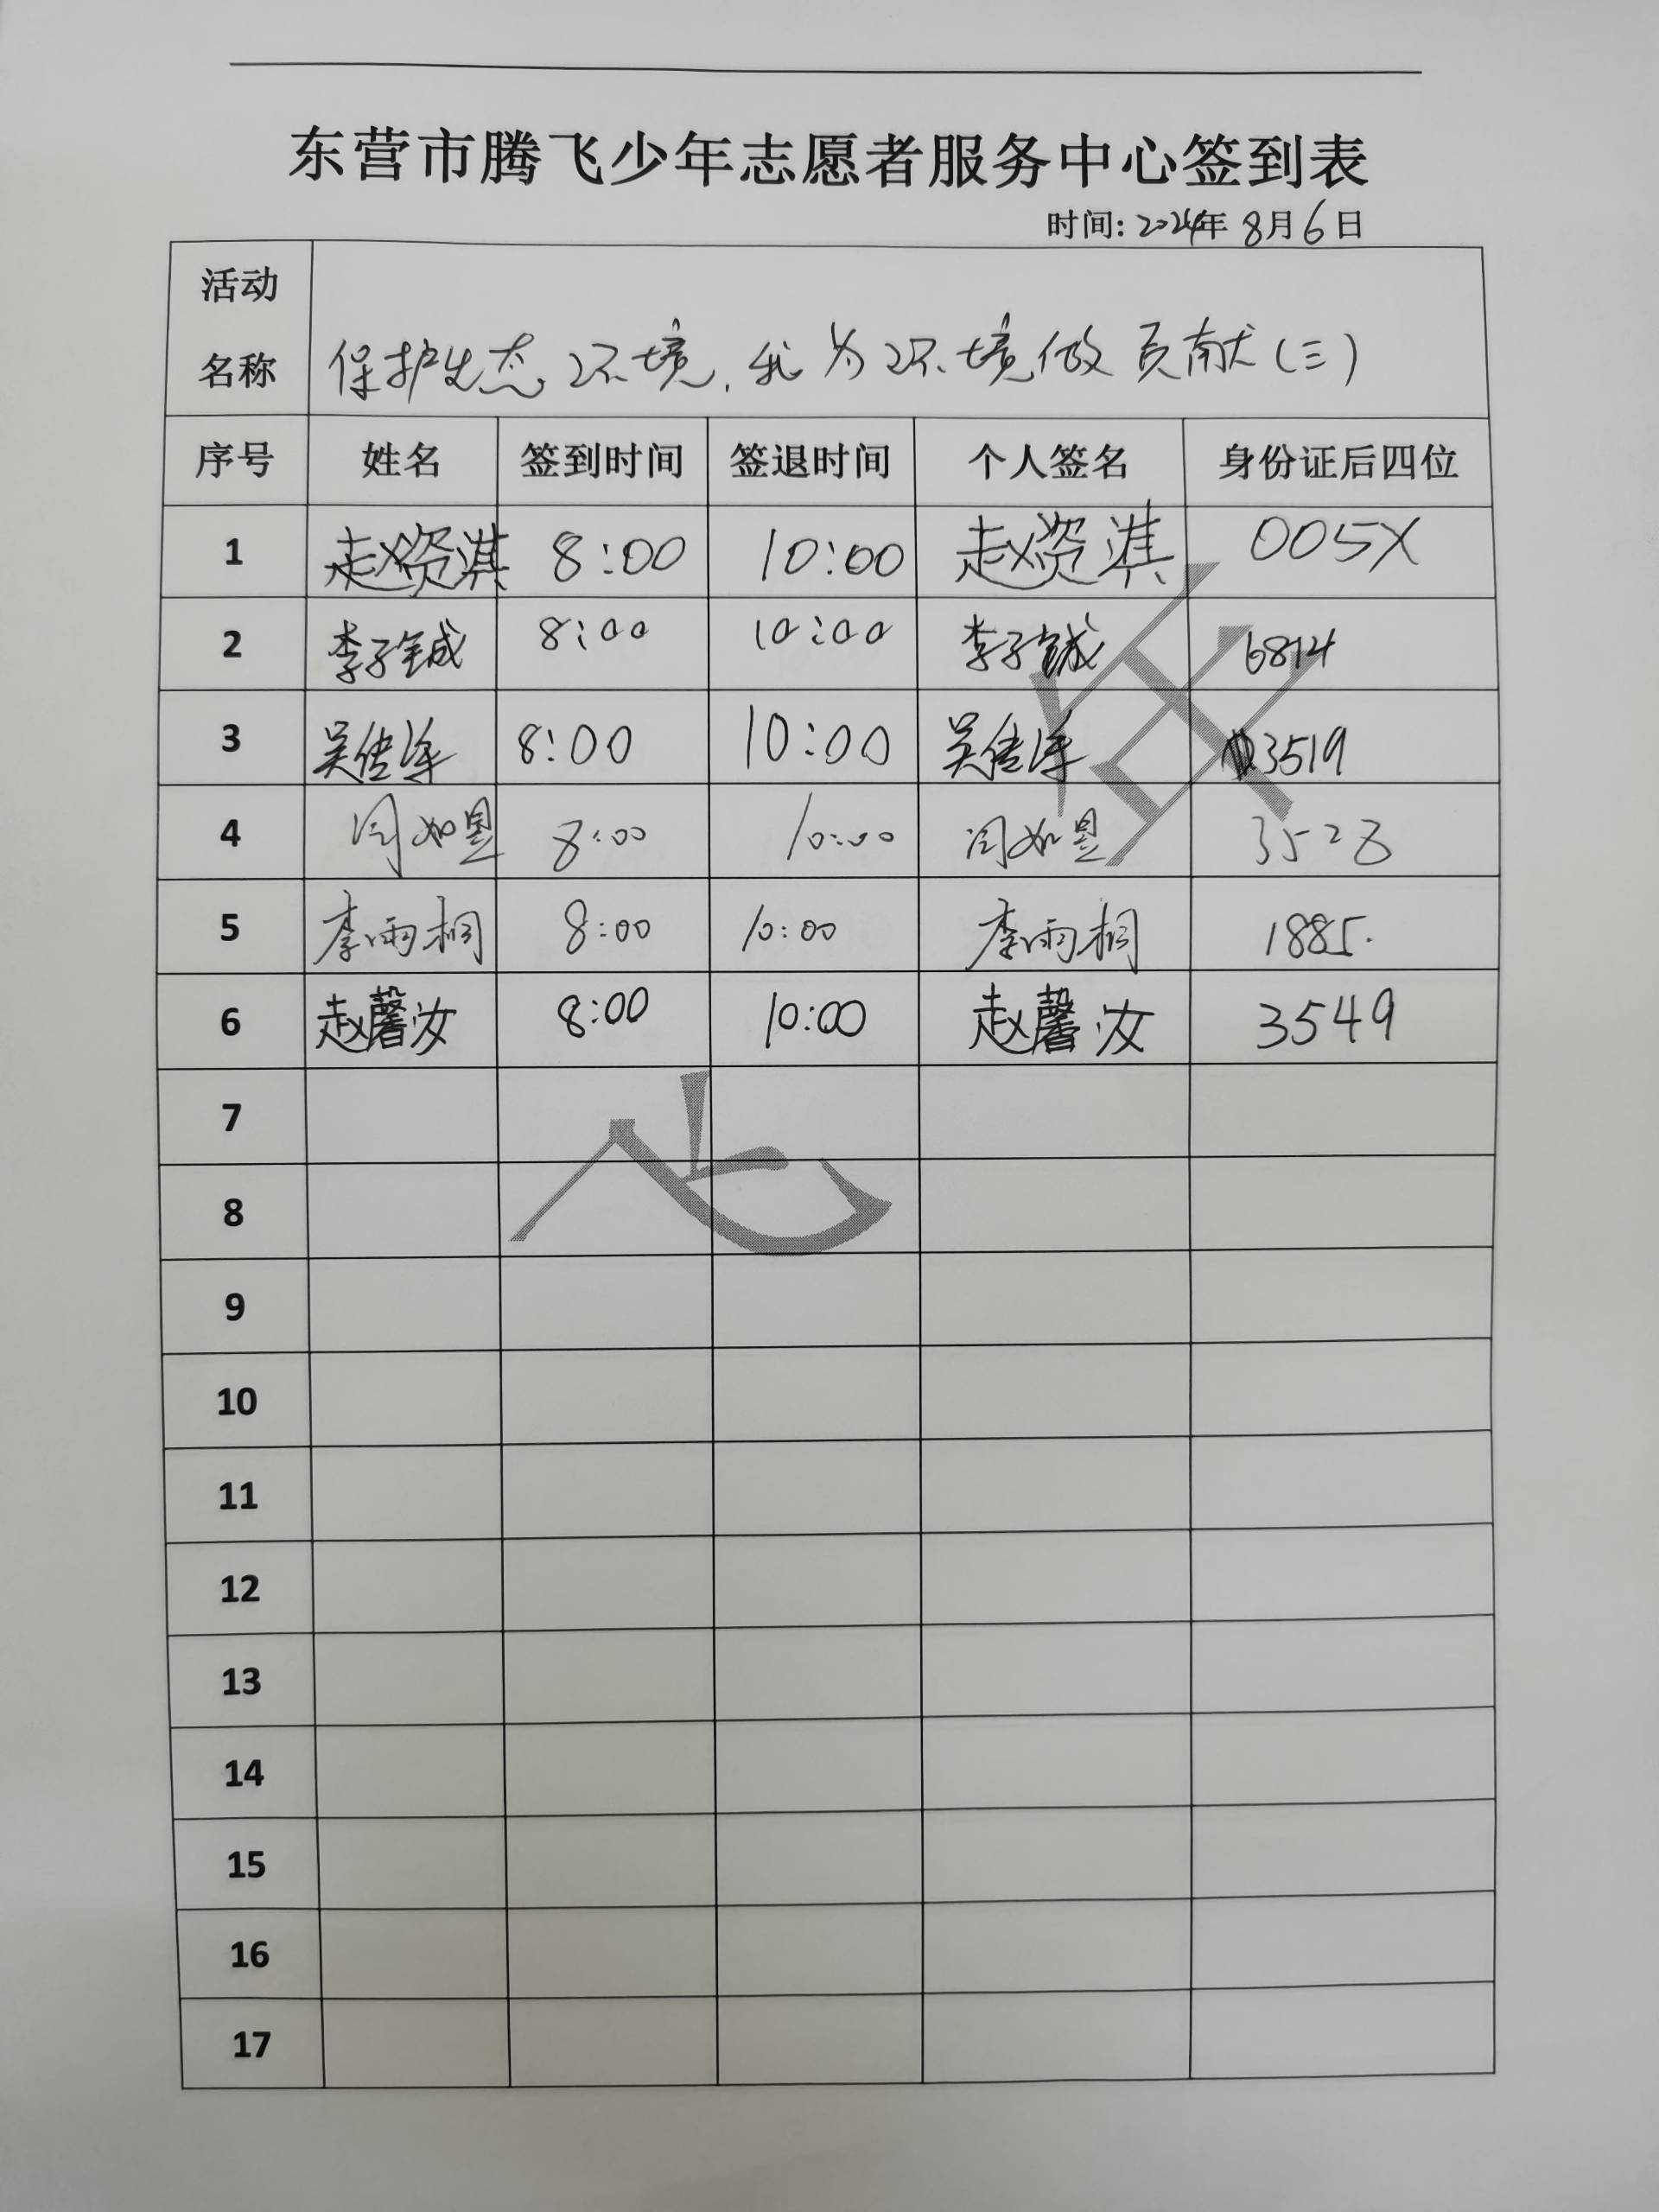 东营市腾飞少年志愿者服务中心签到表
时间: 2024年 8月6日
活动名称 保护生态环境,我为环境做贡献(三)
序号 姓名 签到时间 签退时间 个人签名 身份证后四位
1 赵资淇 8:00 10:00 赵资淇 005X
2 李子铖 8:00 10:00 李子铖 6814
3 吴佳泽 8:00 10:00 吴佳泽 3519
4 闫如昱 8:00 10:00 闫如昱 3528
5 李雨桐 8:00 10:00 李雨桐 1885.
6 赵馨汝 8:00 10:00 赵馨汝 3549
7
8
9
10
11
12
13
14
15
16
17